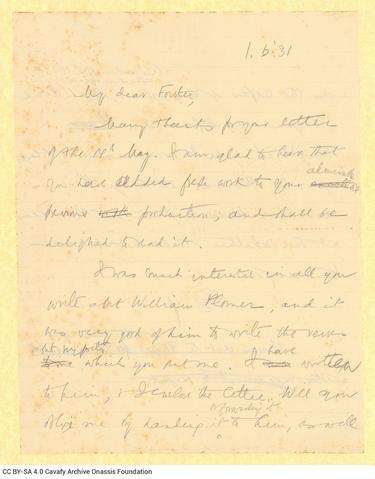 1. 6. 31
My dear Forster,
Many thanks for your letter
of the May. I am glad to hear that
admirable
you have added fresh work to your
previous production; and shall be
delighted to read it.
I was much interested in all you
write abt William Plomer, and it
was very good of him to write the verses
abt my poetry have
which you sent me. I written
to him, & I enclose the letter. Will you
or forwarding it
oblige me by handing it to him, as well
CC BY-SA 4.0 Cavafy Archive Onassis Foundation